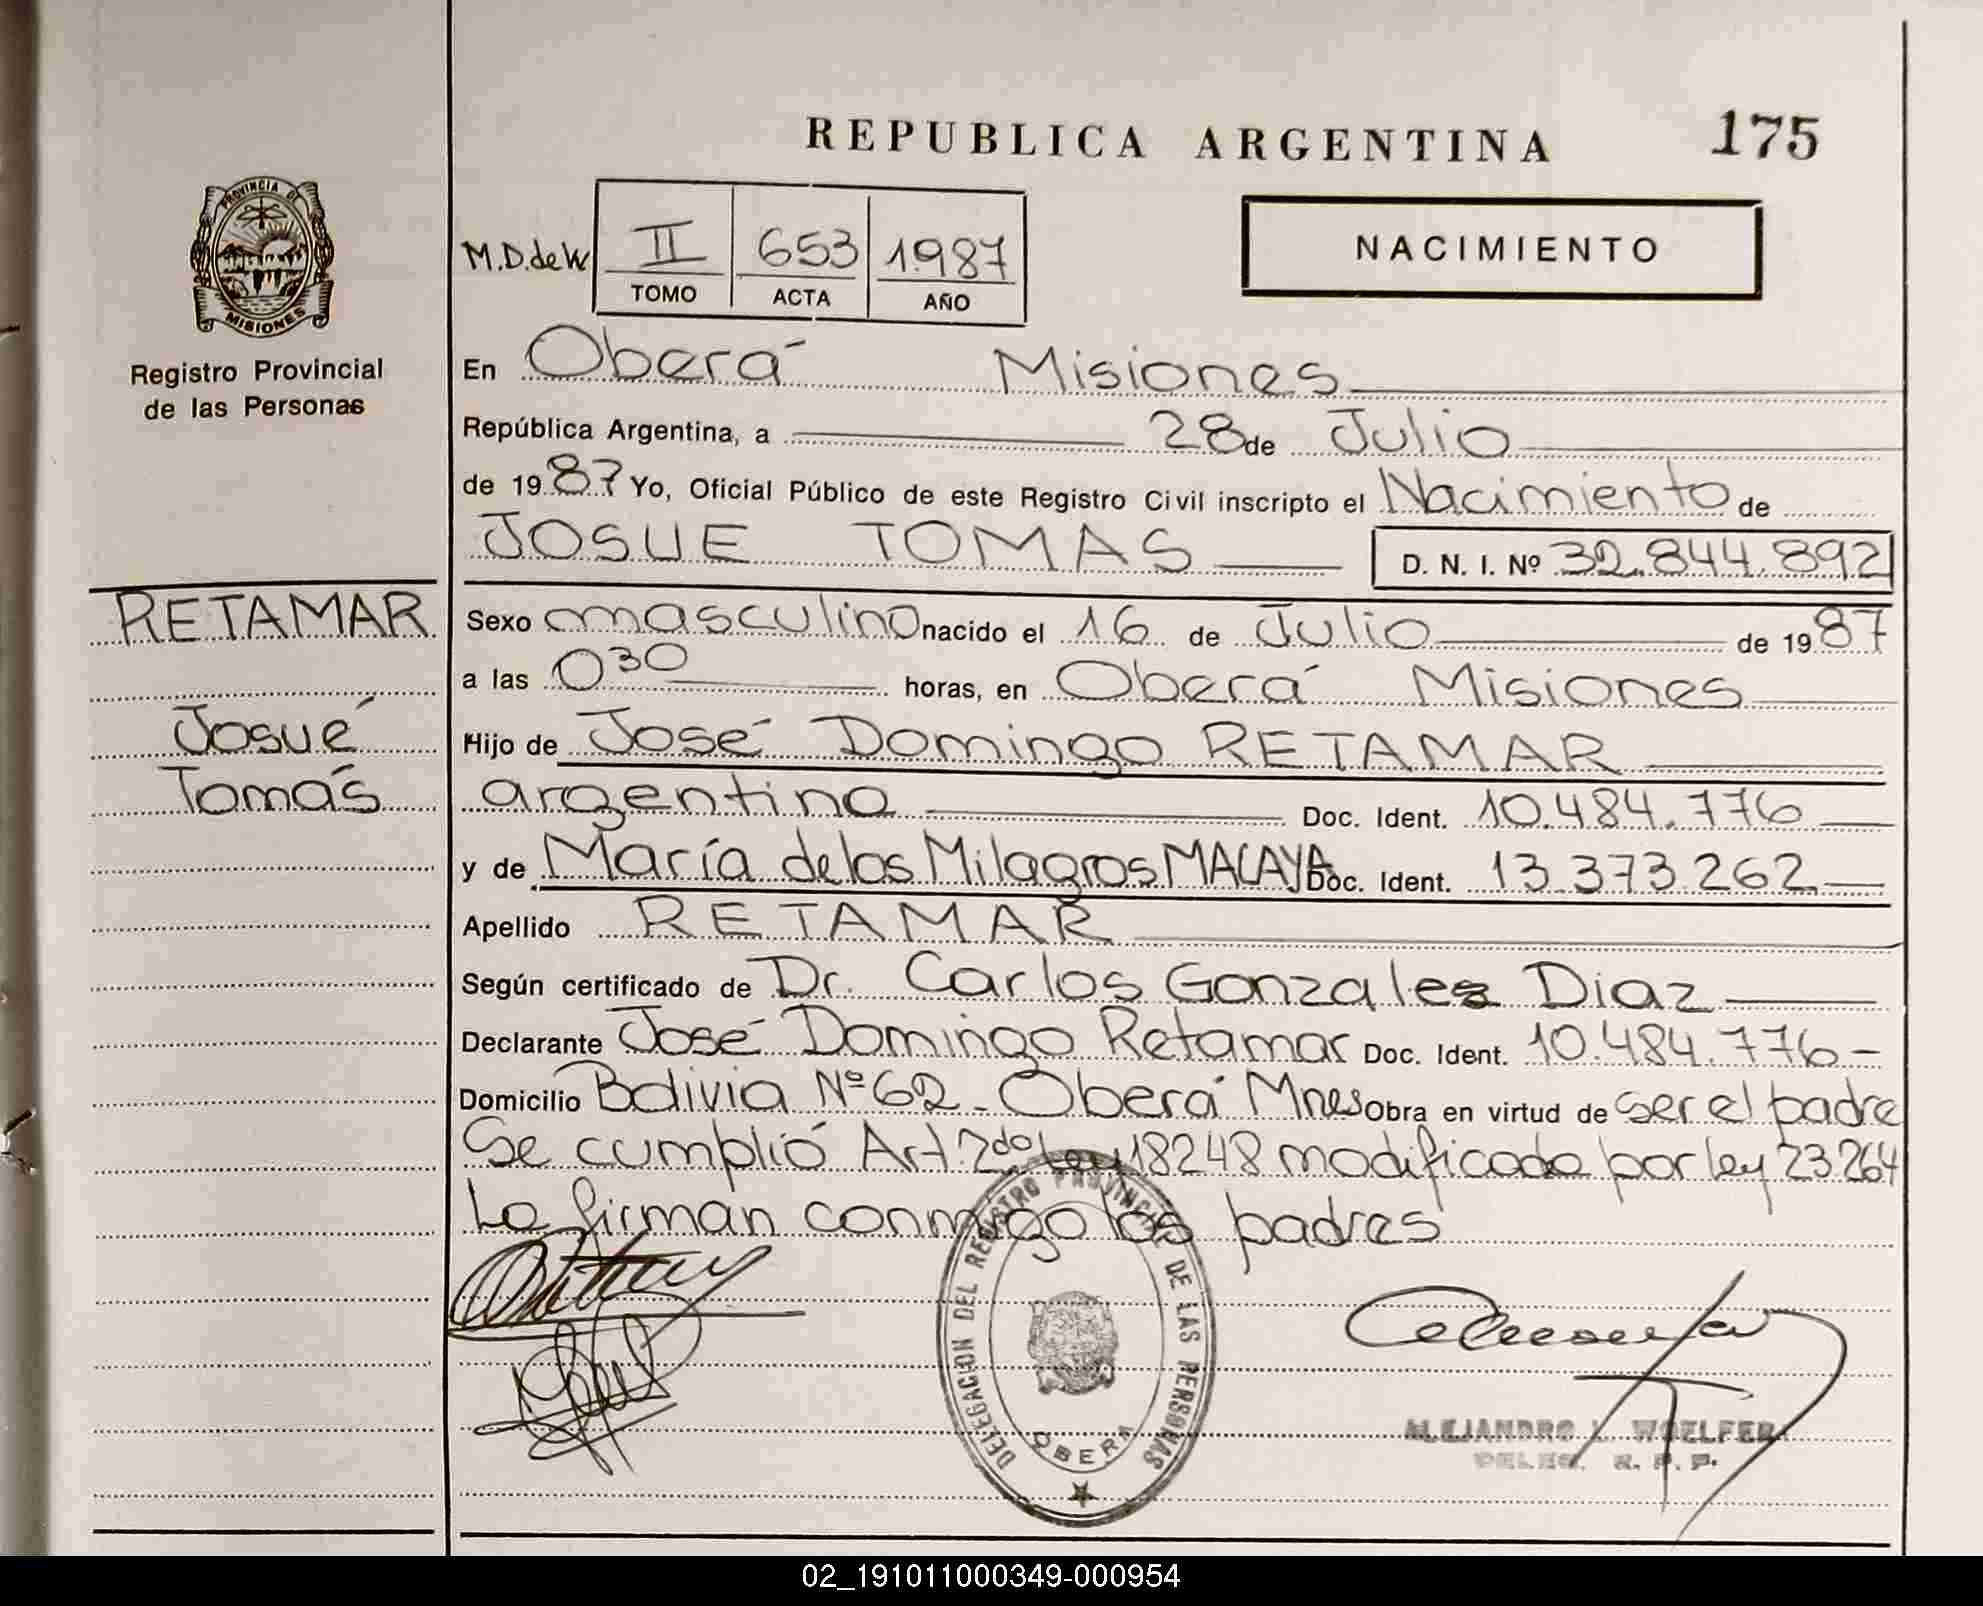 REPUBLICA ARGENTINA
175
PROVINCIA DE
MISIONES
Registro Provincial
de las Personas
M.D.deW
II 653 1987
TOMO ACTA AÑO
NACIMIENTO
En Oberá Misiones
República Argentina, a 28 de Julio
de 1987 Yo, Oficial Público de este Registro Civil inscripto el Nacimiento de
JOSUE TOMAS D. N. I. Nº 32.844.892
RETAMAR
Josué
Tomás
Sexo masculino nacido el 16 de Julio de 1987
a las 030 horas, en Oberá Misiones
Hijo de José Domingo RETAMAR
argentino Doc. Ident. 10.484.776
y de María de los Milagros MACAYA Doc. Ident. 13.373.262
Apellido RETAMAR
Según certificado de Dr. Carlos Gonzalez Diaz
Declarante José Domingo Retamar Doc. Ident. 10.484.776-
Domicilio Bolivia Nº 62 - Oberá Mnes Obra en virtud de ser el padre
Se cumplió Art. 2do Ley 18248 modificada por ley 23.264
Lo firman conmigo los padres
DELEGACION DEL REGISTRO PROVINCIAL DE LAS PERSONAS
OBERA
ALEJANDRO L. WOELFER
DELEG. R. P. P.
02_191011000349-000954